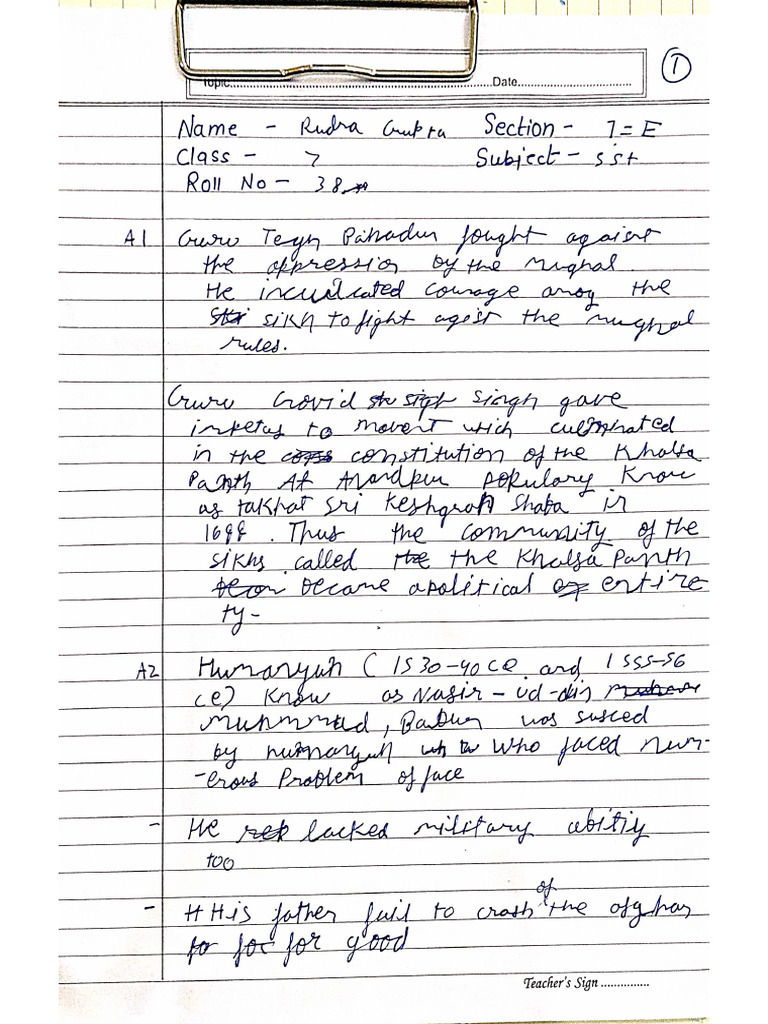 Topic Date
1
Name - Rudra Gupta Section - 7=E
Class - 7 Subject - S.St
Roll No - 38
A1 Guru Tegh Bahadur fought against
the oppression by the mughal.
He inculcated courage among the
sikh to fight agist the mughal
rules.
Guru Govid Singh gave
inpetus to movent which culminated
in the constitution of the Khalsa
Panth At Anandpur populary Know
as takhat Sri Keshgrah Shaba in
1699. Thus the community of the
sikhs called the Khalsa Panth
became apolitical entire
ty-
A2 Humanyuh (1530-40 ce and 1555-56
ce) Know as Nasir-ud-din
muhmmad, Babur was susced
by humanyuh who faced num-
-erous Problem of face
- He lacked military abitiy
too
- His father fail to crash of the afghan
for good
Teacher's Sign